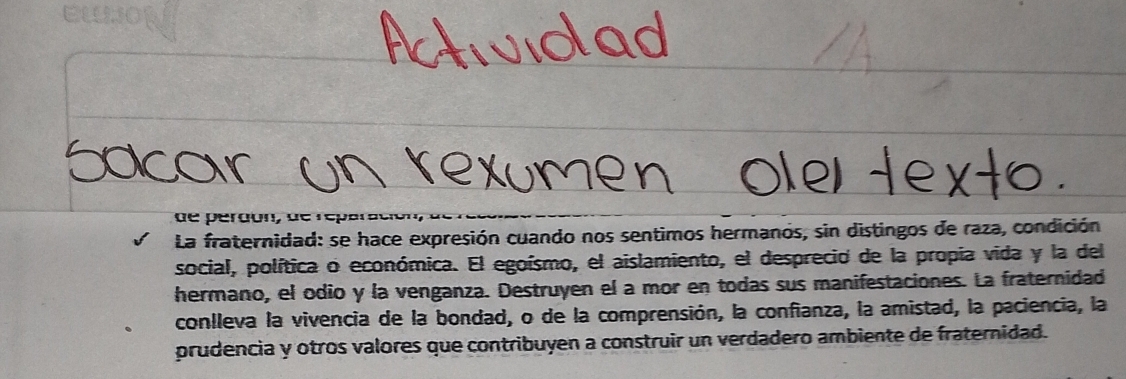 Actividad
Sacar un rexumen del texto.
de perdón, de reparación,
✓ La fraternidad: se hace expresión cuando nos sentimos hermanos, sin distingos de raza, condición
social, política o económica. El egoísmo, el aislamiento, el desprecio de la propia vida y la del
hermano, el odio y la venganza. Destruyen el a mor en todas sus manifestaciones. La fraternidad
conlleva la vivencia de la bondad, o de la comprensión, la confianza, la amistad, la paciencia, la
prudencia y otros valores que contribuyen a construir un verdadero ambiente de fraternidad.